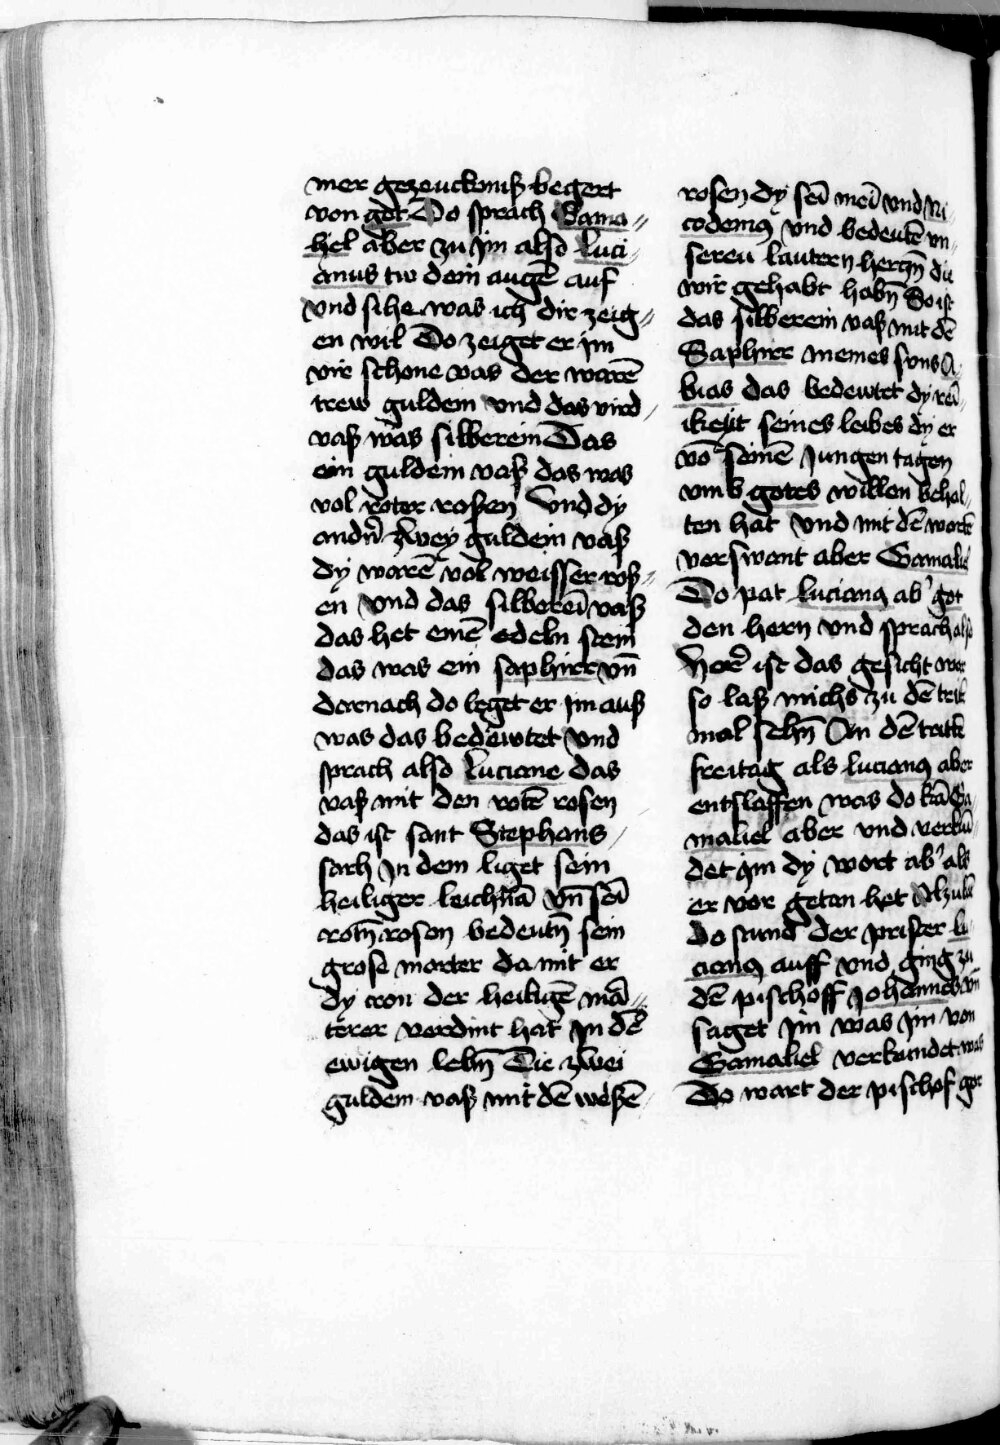 mer gezeuckniß begert
von got Do sprach Gama⸗
liel aber zu ym also Luci⸗
anus tw dein augē auf
vnd sihe was ich dir zeig⸗
en wil Do zeiget er im
vir schone vas der warē
trew guldein vnd das vird
vaß was silberein Das
ein guldein vaß das was
vol roter rosen Vnd dy
andn̄ zwey guldein vaß
dy warē vol weisser roß⸗
en vnd das silbereī vaß
das het einē edeln stein
das was ein saphirr vn̄
dornach do leget er im auß
was das bedewtet vnd
sprach also Luciane das
vaß mit den rotē rosen
das ist sant Stephans
sarh in dem liget sein
heiliger leichnā vn̄ seī
rotn̄ rosen bedeutn̄ sein
grose marter da mit er
dy cron der heiligē mā⸗
terer verdint hat in dē
ewigen lebn̄ Die zwei
guldein vaß mit dē weißē
rosen dy seī meī vnd Ni⸗
codemꝰ vnd bedeutē vn⸗
seren lautern herczn̄ die
wir gehabt habn̄ So ist
das silberein vaß mit dē
Saphirr meines suns A⸗
bias das bedewtet dy reī⸗
ikeyt seines leibes dy er
vō seinē Jungen tagen
vmb gotes willen behal⸗
ten hat Vnd mit dē wortē
verswant aber Gamaliel
Do pat Lucianꝰ ab̓ got
den hern vnd sprach also
Herē ist das gesicht war
so laß michs zu dē trit
mal sehn̄ An dē tritē
freitag als Lucianꝰ aber
entslaffen was do kā Ga⸗
maliel aber vnd verkū⸗
det ym dy wort ab̓ als
er vor getan het
do stund der prister Lu⸗
cianꝰ auff vnd ging zu
dē pischoff Johannes vn̄
saget im was im von
Gamaliel verkundet was
Do wart der pischof got